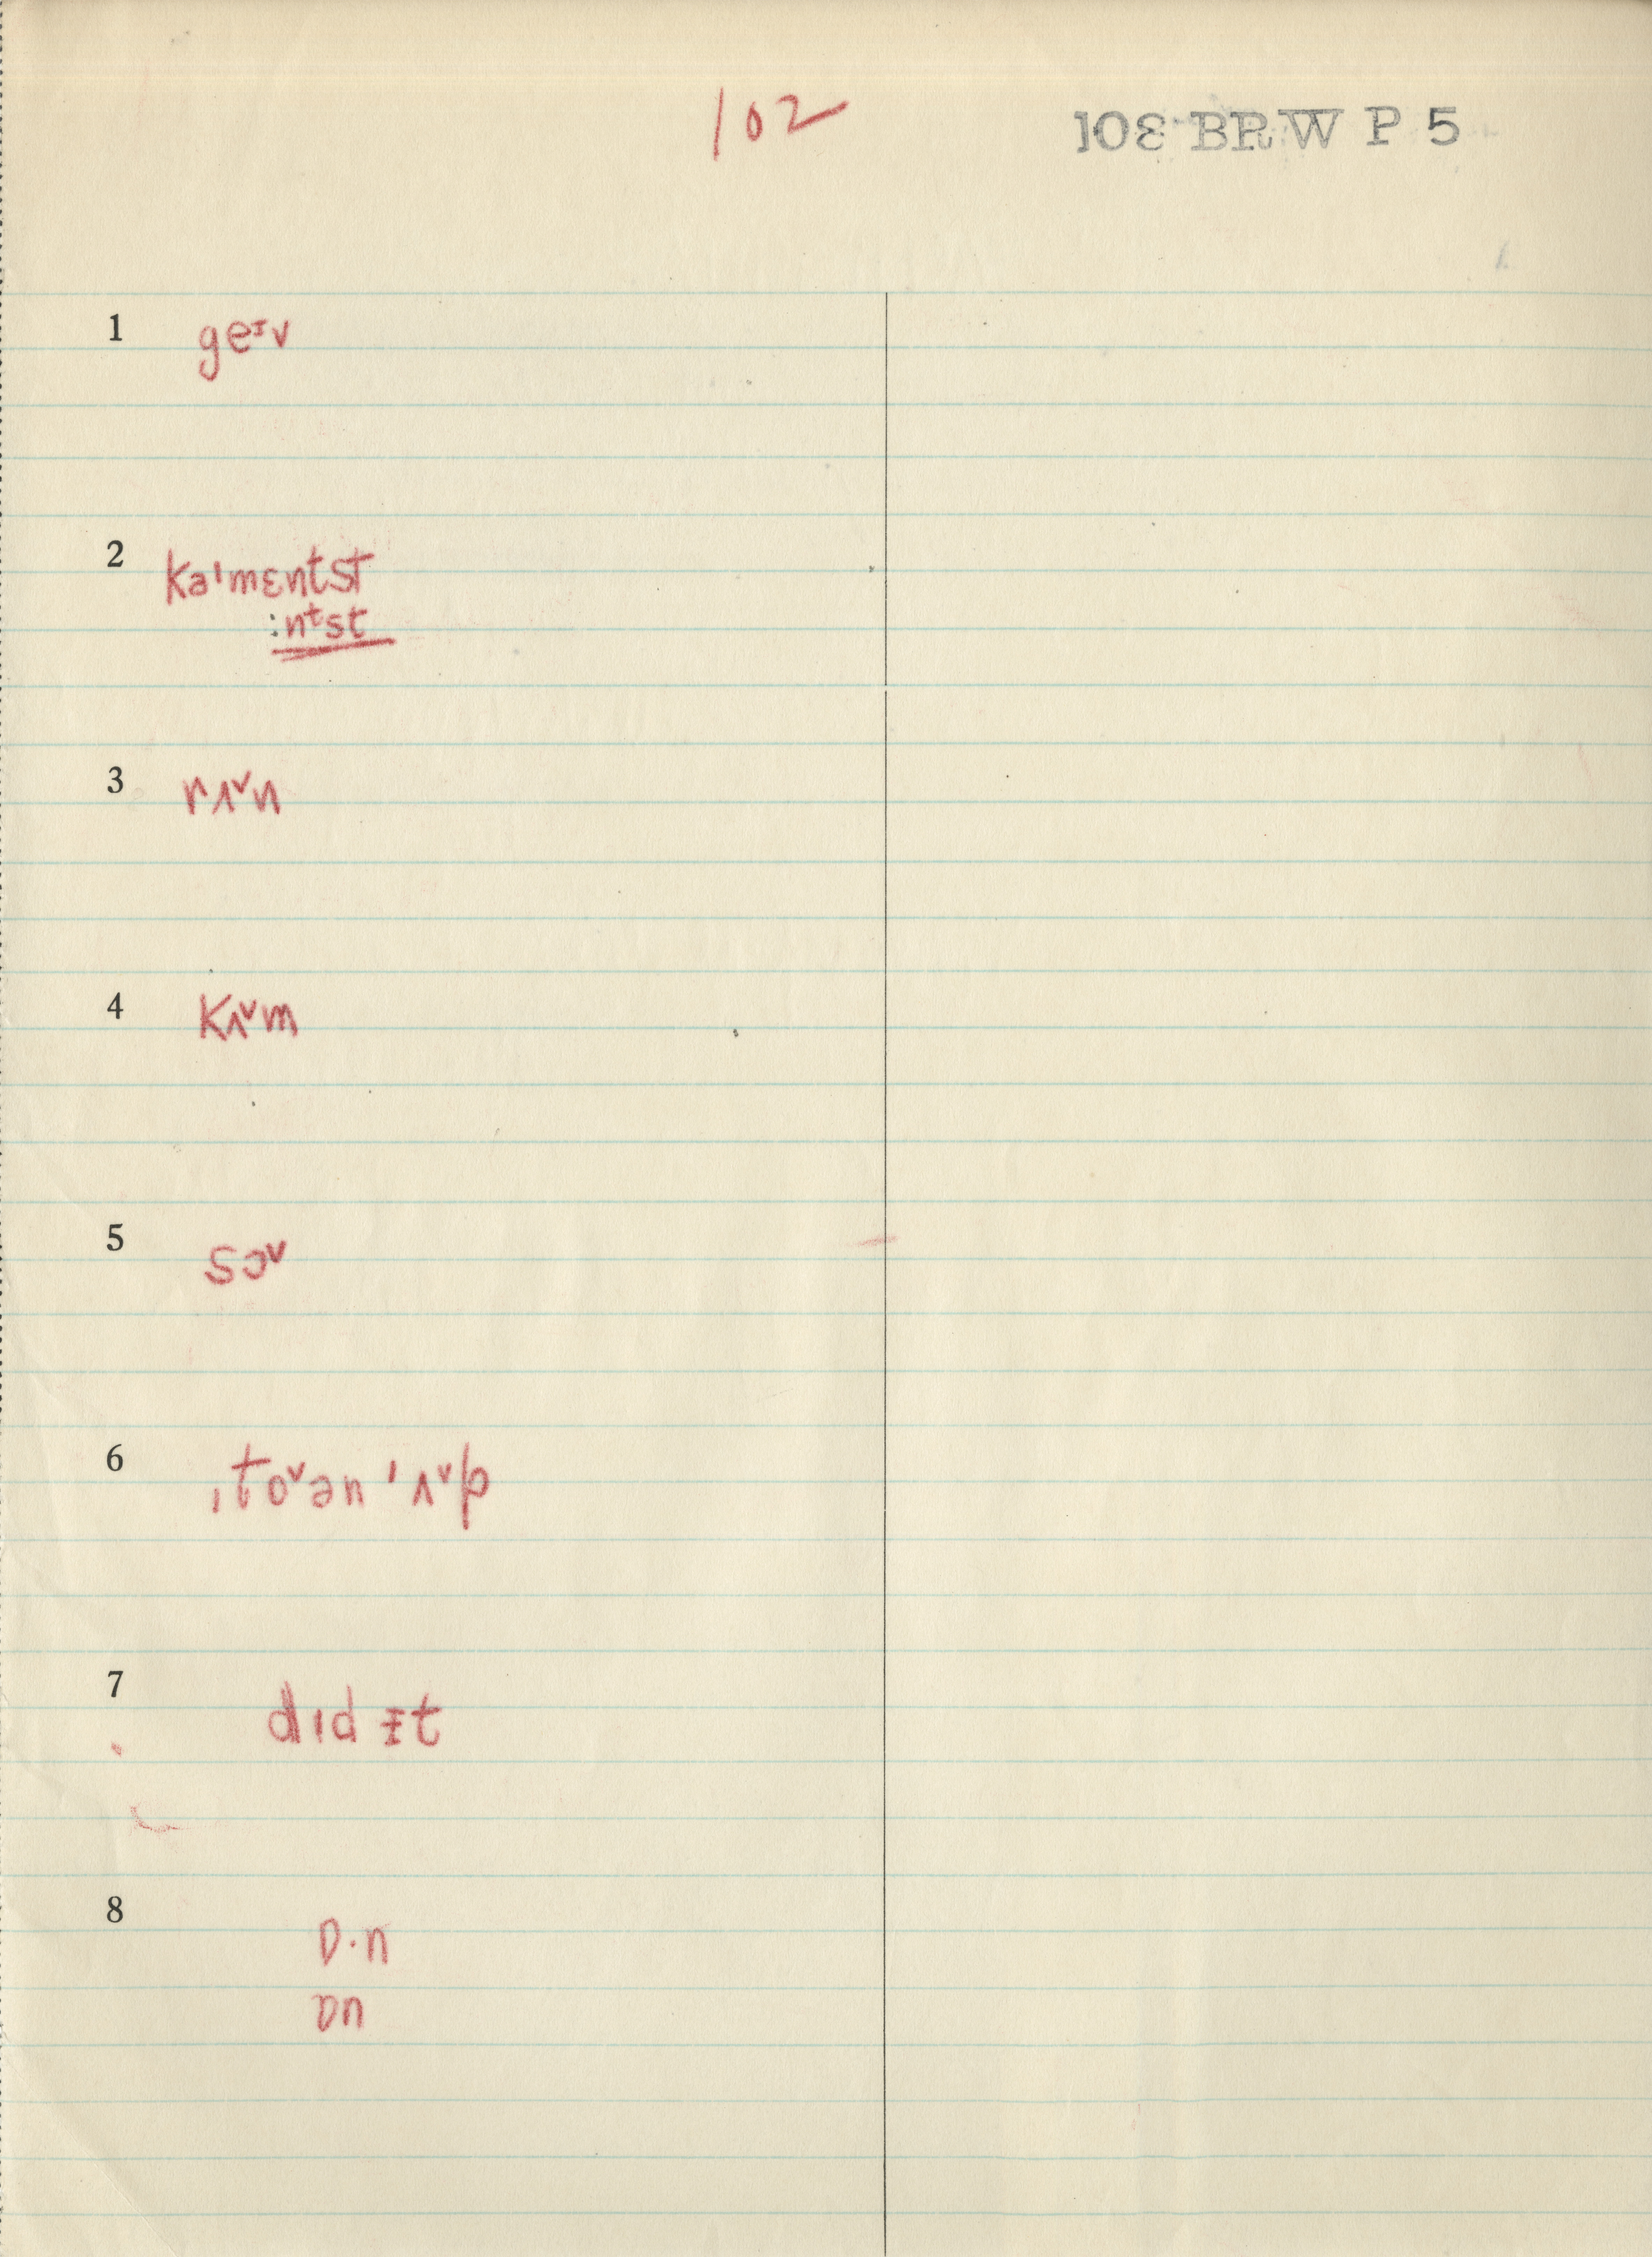 102
103 BRW P 5
1 geᶦv
2 kəˈmɛntst
:nᵗst
3 rʌ˅n
4 kʌ˅m
5 sɔ˅
6 ˌto˅ən ˈʌ˅p
7 dɪd ɪt
8 ɒ·n
ɒn